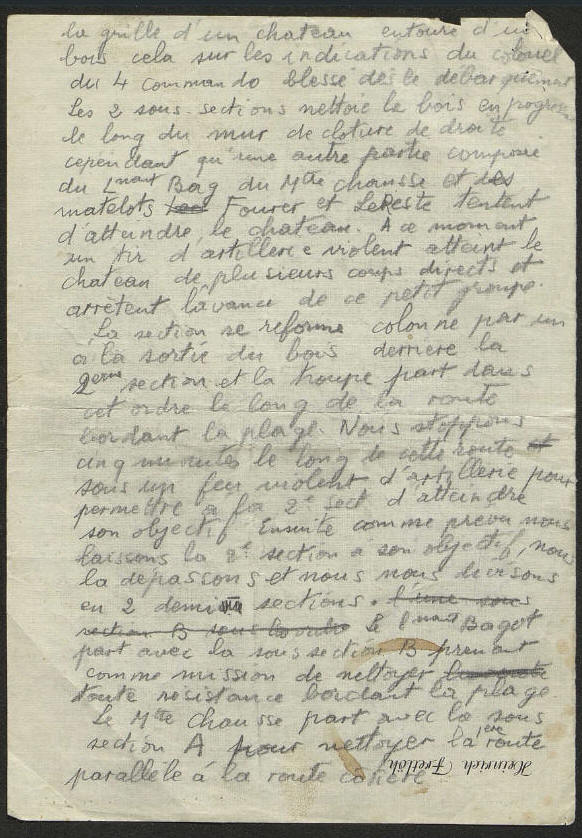 la grille d'un chateau entouré d'un
bois cela sur les indications du colonel
du 4 commando blessé dès le débarquement
Les 2 sous-sections nettoie le bois en progres
le long du mur de cloture de droite
cependant qu'une autre partie composée
du Lnant Bag du Mtre chausse et des
matelots Fourer et LeReste tentent
d'atteindre le chateau. A ce moment
un tir d'artillerie violent atteint le
chateau de plusieurs coups directs et
arrêtent l'avance de ce petit groupe.
La section se reforme colonne par un
à la sortie du bois derriere la
2eme section et la troupe part dans
cet ordre le long de la route
bordant la plage. Nous stoppons
cinq minutes le long de cette route et
sous un feu violent d'artillerie pour
permettre à la 2e sect d'atteindre
son objectif Ensuite comme prévu nous
laissons la 2e section a son objectif, nous
la dépassons et nous nous divisons
en 2 demi sections. l'une sous
section B sous Le lnant Bagot
part avec la sous section B prenant
comme mission de nettoyer
toute résistance bordant la plage
Le Mtre Chausse part avec la sous
section A pour nettoyer la 1ère route
parallèle à la route cotière
Heinrich Frettlöh